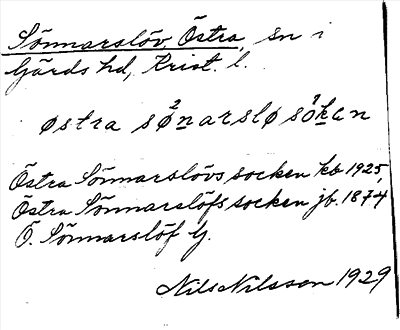 Sönnarslöv, Östra, sn i
Gärds hd, Krist. l.
østra sø²narslø sǒ⁷kan
Östra Sönnarslövs socken kb 1925,
Östra Sönnarslöfs socken jb. 1874
Ö. Sönnarslöf Gj.
Nils Nilsson 1929